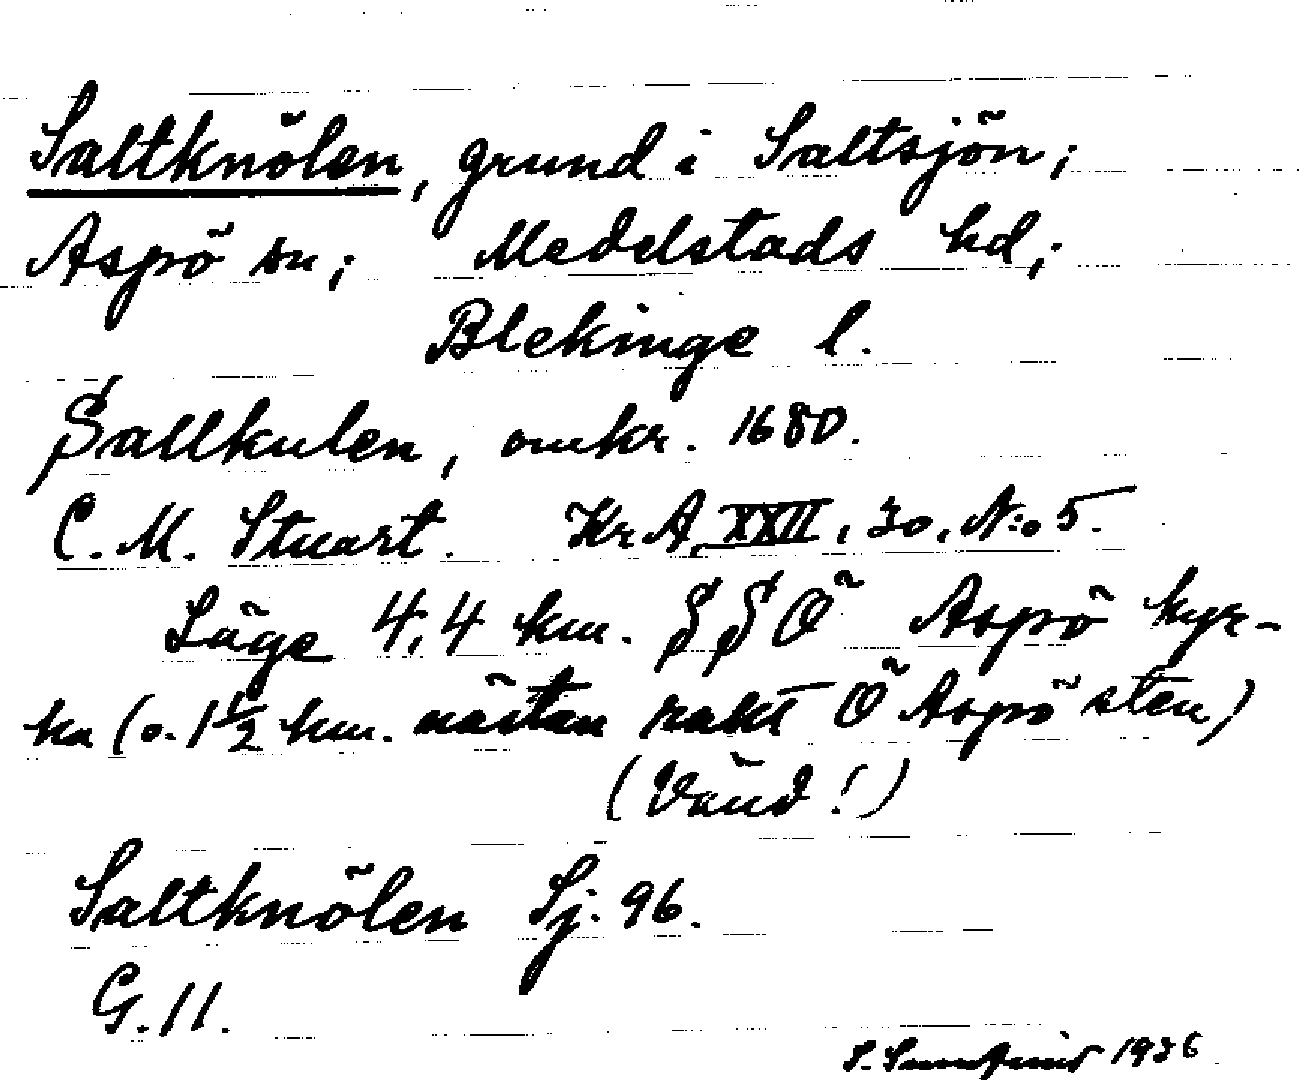 Saltknölen, grund i Saltsjön;
Aspö sn; Medelstads hd;
Blekinge l.
Sallkulen, omkr. 1680.
C. M. Stuart. Kr A, XXII, 30, N:o 5.
Läge 4,4 km. SSÖ Aspö kyr-
ka (o. 1 1/2 km. nästan rakt Ö Aspö sten)
(Vänd!)
Saltknölen Sj. 96.
G. 11.
S. 1936